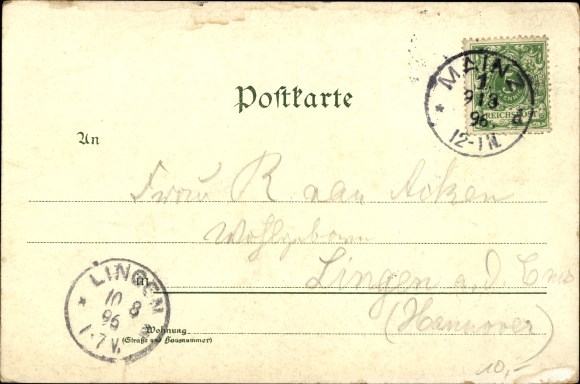 MAINZ
1
9 8
96.
12-1N.
REICHSPOST
Postkarte
An
Frau R. van Acken
Wohlgeboren
in Lingen a. d. Ems
(Hannover)
LINGEN
10 8
96
1-7V.
Wohnung
(Straße und Hausnummer)
10,-